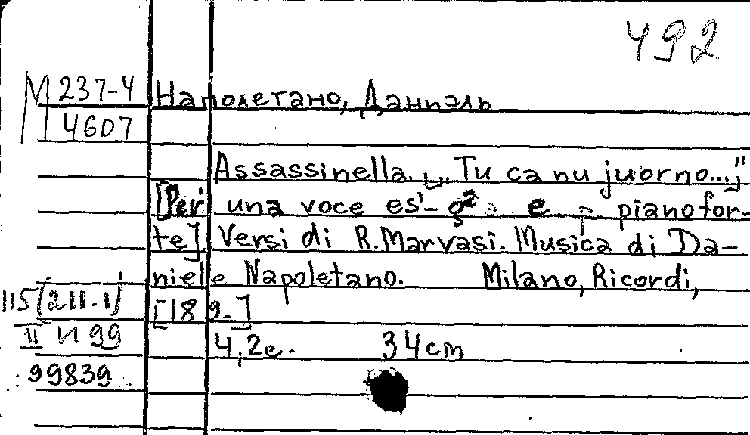 492
М 237-4
4607
Наполетано, Даниэль
Assassinella. „Tu ca nu juorno..."
[Per una voce es'- e pianofor-
te] Versi di R. Marvasi. Musica di Da-
niele Napoletano. Milano, Ricordi,
115(211-1)
[189-]
II И 99
4,2c. 34cm
99839